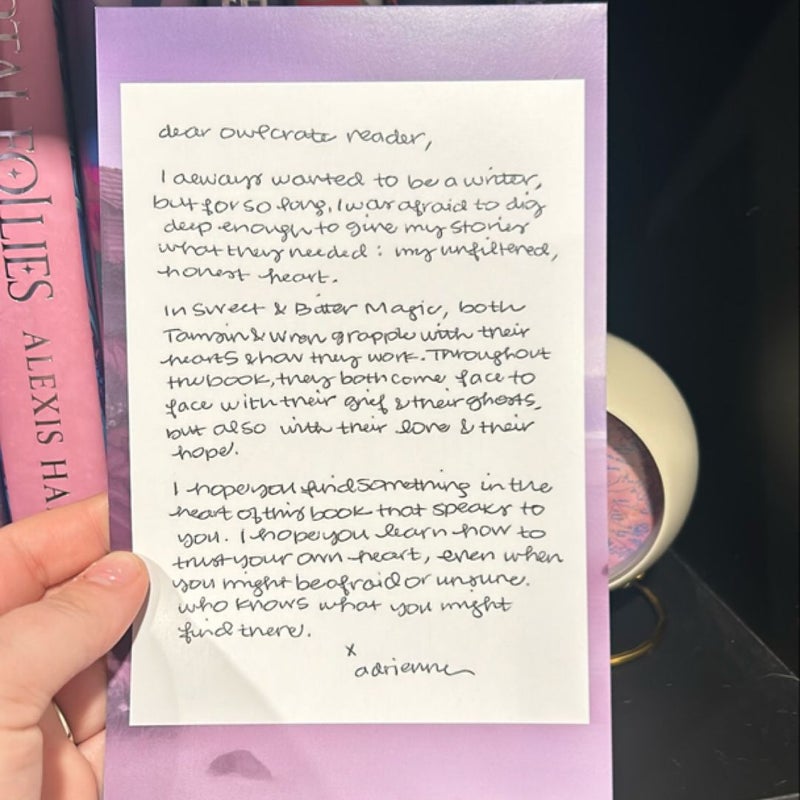 TAL FOLLIES ALEXIS HA
dear owlcrate reader,
I always wanted to be a writer,
but for so long, I was afraid to dig
deep enough to give my stories
what they needed: my unfiltered,
honest heart.
In Sweet & Bitter Magic, both
Tamsin & Wren grapple with their
hearts & how they work. Throughout
the book, they both come face to
face with their grief & their ghosts,
but also with their love & their
hope.
I hope you find something in the
heart of this book that speaks to
you. I hope you learn how to
trust your own heart, even when
you might be afraid or unsure.
who knows what you might
find there.
x
adrienne